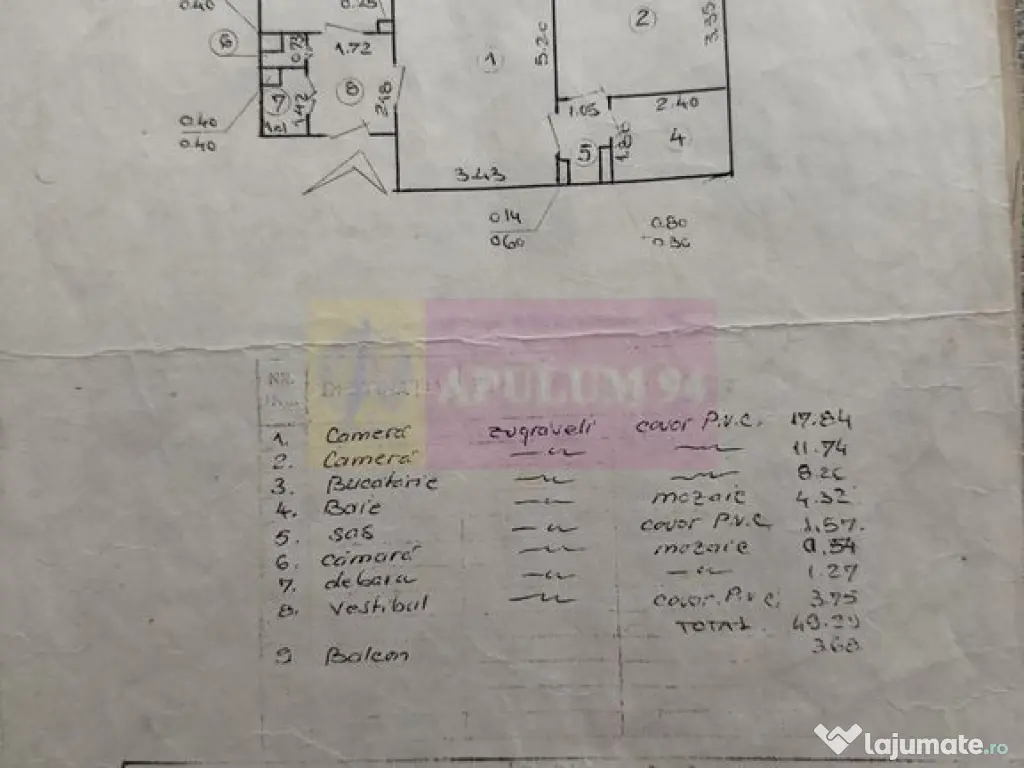 0.40
0.25
6
0.73
1.72
1
5.20
2
3.35
7
1.12
8
2.18
1.05
2.40
0.40
0.40
5
1.80
4
3.43
0.14
0.60
0.80
0.30
NR.
APULUM 94
1. Cameră zugraveli covor P.v.c. 17.84
2. Cameră —〃— —〃— 11.74
3. Bucatarie —〃— —〃— 8.26
4. Baie —〃— mozaic 4.32
5. sas —〃— covor P.v.c 1.57.
6. cămară —〃— mozaic 0.54
7. debara —〃— —〃— 1.27
8. vestibul —〃— covor P.v.c. 3.75
TOTAL 49.29
9 Balcon 3.60
lajumate.ro